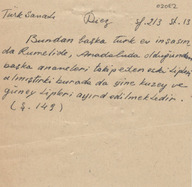 02052
Türk Sanatı Diez sf. 213 st. 13
Bundan başka türk ev inşasın
da Rumelide, Anadoluda olduğundan
başka ananeleri takip eden eski tipleri
ulmıştır burada da yine kuzey ve
güney tipleri ayırd edilmektedir.
(Ş. 149)